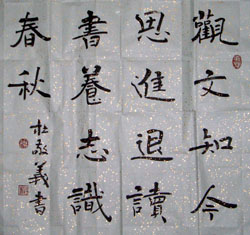 觀文知今
思進退讀
書養志識
春秋
杜敬義書